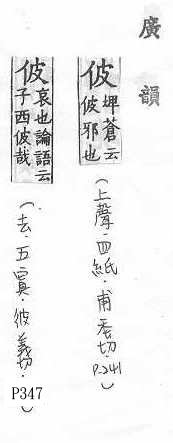 廣韻
佊
埤蒼云
佊邪也
(上聲·四紙·甫委切·P.241)
佊
哀也論語云
子西佊哉
(去·五寘·彼義切·P347)